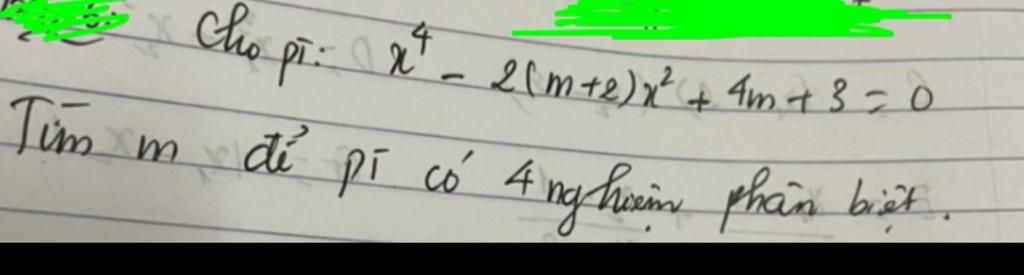 Cho pt: x⁴ - 2(m+2)x² + 4m + 3 = 0
Tìm m để pt có 4 nghiệm phân biệt.